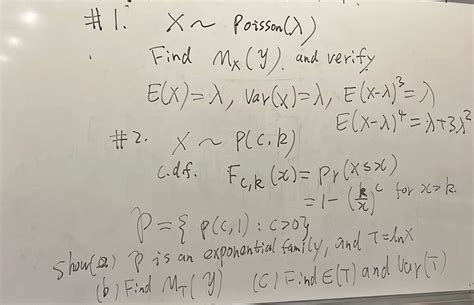 #1. X ~ Poisson(λ)
Find M_X(Y) and verify
E(X)=λ, Var(X)=λ, E(X-λ)^3=λ
E(X-λ)^4=λ+3λ^2
#2. X ~ P(c,k)
c.d.f. F_{c,k}(x)=Pr(X≤x)
=1-(k/x)^c for x>k.
P={P(c,1): c>0}
Show(a) P is an exponential family, and T=lnX
(b) Find M_T(Y) (c) Find E(T) and Var(T)